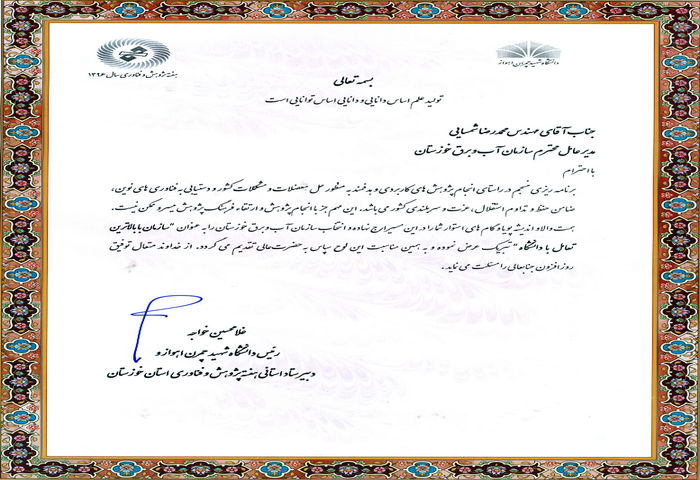 دانشگاه شهید چمران اهواز
هفته پژوهش و فناوری سال ۱۳۹۶
بسمه تعالی
تولید علم اساس دانایی و دانایی اساس توانایی است
جناب آقای مهندس محمدرضا شمسایی
مدیرعامل محترم سازمان آب و برق خوزستان
با احترام
برنامه ریزی منسجم در راستای انجام پژوهش های کاربردی و هدفمند به منظور حل معضلات و مشکلات کشور و دستیابی به فناوری های نوین،
ضامن حفظ و تداوم استقلال، عزت و سربلندی کشور می باشد. این مهم جز با انجام پژوهش و ارتقاء فرهنگ پژوهش میسر و ممکن نیست.
همت والا و اندیشه پویا و گام های استوار شما را در این مسیر ارج نهاده و انتخاب سازمان آب و برق خوزستان را به عنوان "سازمان با بالاترین
تعامل با دانشگاه" تبریک عرض نموده و به همین مناسبت این لوح سپاس به حضرت عالی تقدیم می گردد. از خداوند متعال توفیق
روز افزون جنابعالی را مسئلت می نماید.
غلامحسین خواجه
رئیس دانشگاه شهید چمران اهواز و
دبیر ستاد استانی هفته پژوهش و فناوری استان خوزستان